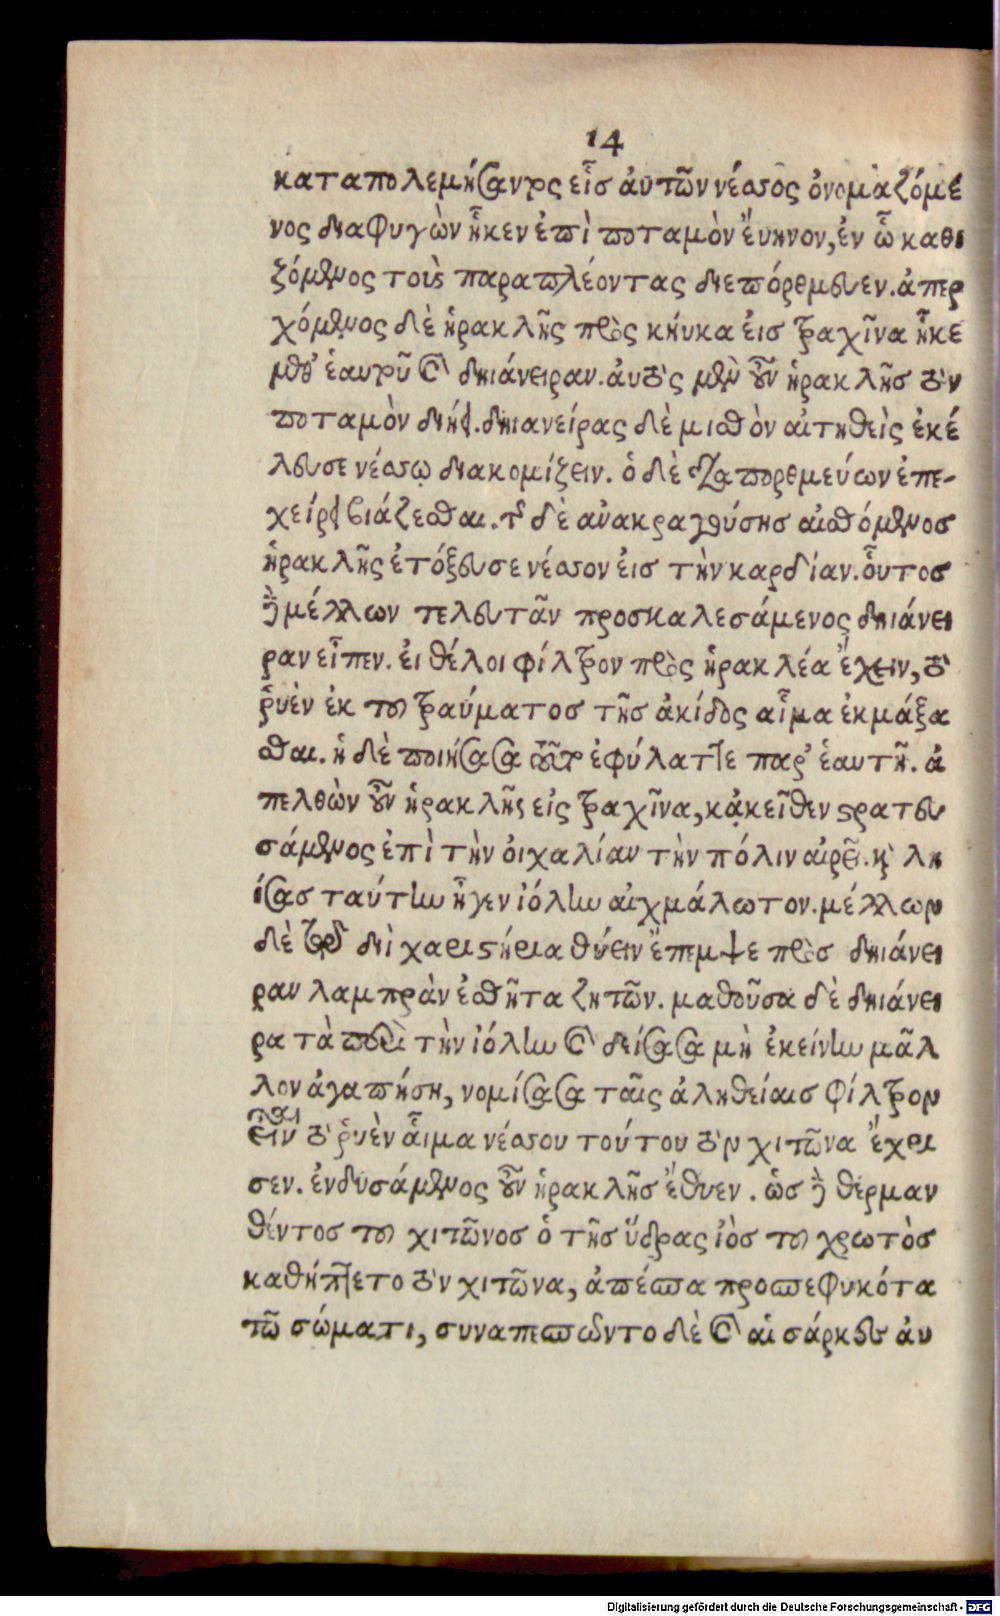 14
καταπολεμήσαντος εἷσ αὐτῶν νέσσος ὀνομαζόμε
νος διαφυγὼν ἧκεν ἐπὶ ποταμὸν ἔυηνον, ἐν ὧ καθε
ζόμενος τοὺς παραπλέοντας διεπόρθμευεν. ἀπερ
χόμενος δὲ ἡρακλῆς πρὸς κήυκα ἐισ τραχῖνα ἧκε
μεθ' ἑαυτοῦ καὶ δηιάνειραν. ἀυτὸς μὲν οὖν ἡρακλῆσ τὸν
ποταμὸν διήει. δηιανείρας δὲ μισθὸν αἰτηθεὶς ἐκέ
λευσε νέσσῳ διακομίζειν. ὁ δὲ διαπορθμεύων ἐπε-
χείρει βιάζεσθαι. τῆς δὲ ἀνακραγούσησ αἰσθόμενοσ
ἡρακλῆς ἐτόξευσε νέσσον ἐισ τὴν καρδίαν. οὗτοσ
δὲ μέλλων τελευτᾶν προσκαλεσάμενος δηιάνει
ραν εἶπεν. ἐι θέλοι φίλτρον πρὸς ἡρακλέα ἔχειν, τὸ
ῥυὲν ἐκ τοῦ τραύματοσ τῆσ ἀκίδος αἷμα ἐκμάξα
σθαι. ἡ δὲ ποιήσασα τοῦτο ἐφύλαττε παρ' ἑαυτῆ. ἀ
πελθὼν οὖν ἡρακλῆς εἰς τραχῖνα, κᾀκεῖθεν στρατευ
σάμενος ἐπὶ τὴν ὀιχαλίαν τὴν πόλιν αἱρεῖ. καὶ λη
ίσασ ταύτην ἦγεν ἰόλην αἰχμάλωτον. μέλλων
δὲ τῷ διὶ χαριστήρια θύειν ἔπεμψε πρὸσ δηιάνει
ραν λαμπρὰν ἐσθῆτα ζητῶν. μαθοῦσα δὲ δηιάνει
ρα τὰ περὶ τὴν ἰόλην καὶ δείσασα μὴ ἐκείνην μᾶλ
λον ἀγαπήση, νομίσασα ταῖς ἀληθείαισ φίλτρον
εἶναι τὸ ῥυὲν αἷμα νέσσου τούτου τὸν χιτῶνα ἔχρι
σεν. ἐνδυσάμενος οὖν ἡρακλῆσ ἔθυεν. ὡσ δὲ θερμαν
θέντοσ τοῦ χιτῶνοσ ὁ τῆσ ὕδρας ἰὸσ τοῦ χρωτὸσ
καθήπτετο τὸν χιτῶνα, ἀπέσπα προσπεφυκότα
τῶ σώματι, συναπεσπῶντο δὲ καὶ αἱ σάρκες ἀυ
Digitalisierung gefördert durch die Deutsche Forschungsgemeinschaft - DFG